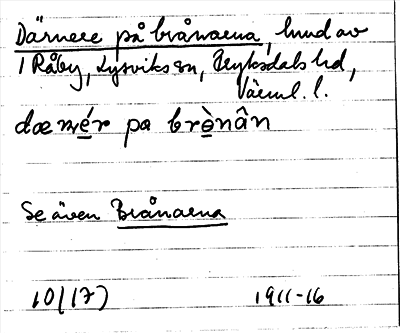 Därnere på brånarna, hmd av
1 Råby, Lysviks sn, Fryksdals hd,
Värml. l.
dæ nér pa brònân
Se även Brånarna
10(17) 1911-16